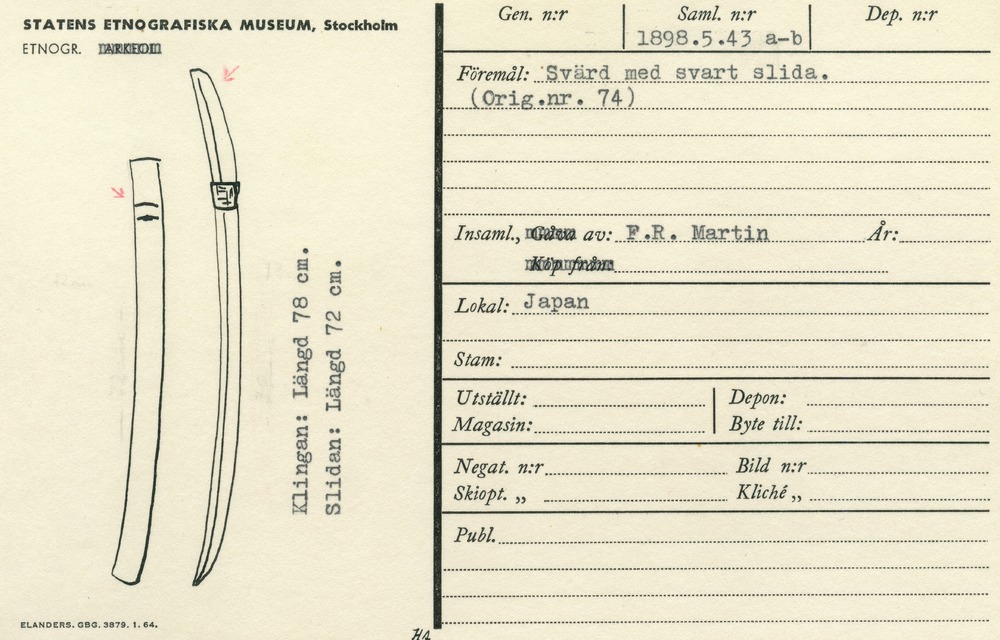 STATENS ETNOGRAFISKA MUSEUM, Stockholm
ETNOGR. ARKEOL.
Klingan: Längd 78 cm.
Slidan: Längd 72 cm.
ELANDERS. GBG. 3879. 1. 64.
Gen. n:r Saml. n:r Dep. n:r
1898.5.43 a-b
Föremål: Svärd med svart slida.
(Orig.nr. 74)
Insaml., Gåva av: F.R. Martin År:
Köp från:
Lokal: Japan
Stam:
Utställt: Depon:
Magasin: Byte till:
Negat. n:r Bild n:r
Skiopt. „ Kliché „
Publ.